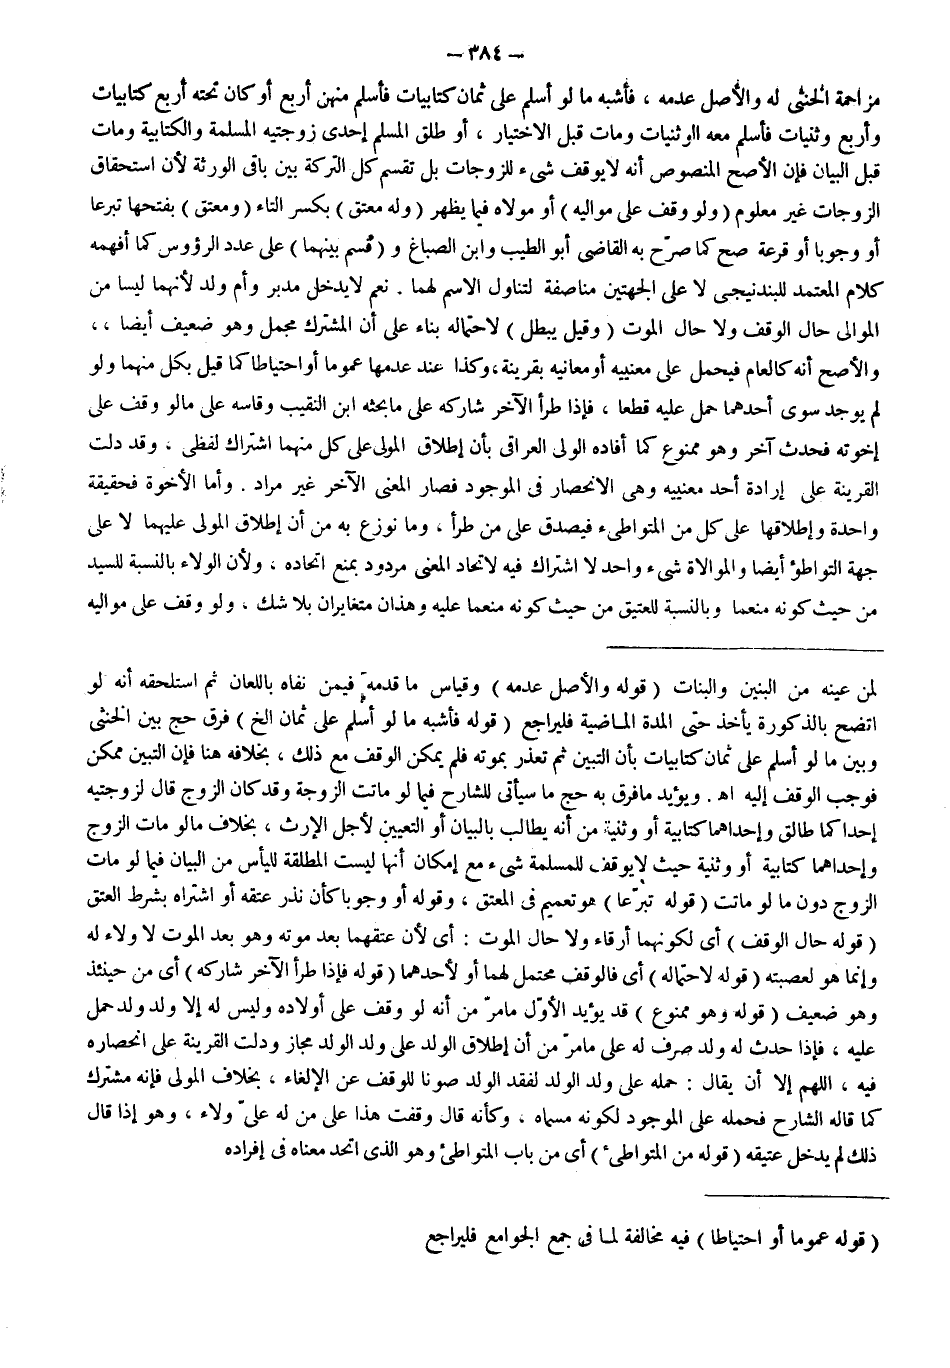 — ٣٨٤ —
مزاحمة الخنثى له والأصل عدمه ، فأشبه ما لو أسلم على ثمان كتابيات فأسلم منهن أربع أو كان تحته أربع كتابيات
وأربع وثنيات فأسلم معه الوثنيات ومات قبل الاختيار ، أو طلق المسلم إحدى زوجتيه المسلمة والكتابية ومات
قبل البيان فإن الأصح المنصوص أنه لايوقف شىء للزوجات بل تقسم كل التركة بين باقى الورثة لأن استحقاق
الزوجات غير معلوم ( ولو وقف على مواليه ) أو مولاه فيما يظهر ( وله معتق ) بكسر التاء ( ومعتق ) بفتحها تبرعا
أو وجوبا أو قرعة صح كما صرّح به القاضى أبو الطيب وابن الصباغ و ( قُسم بينهما ) على عدد الرؤوس كما أفهمه
كلام المعتمد للبندنيجى لا على الجهتين مناصفة لتناول الاسم لهما . نعم لايدخل مدبر وأم ولد لأنهما ليسا من
الموالى حال الوقف ولا حال الموت ( وقيل يبطل ) لاحتماله بناء على أن المشترك مجمل وهو ضعيف أيضا ، ،
والأصح أنه كالعام فيحمل على معنييه أومعانيه بقرينة ، وكذا عند عدمها عموما أو احتياطا كما قيل بكل منهما ولو
لم يوجد سوى أحدهما حمل عليه قطعا ، فإذا طرأ الآخر شاركه على مابحثه ابن النقيب وقاسه على مالو وقف على
إخوته فحدث آخر وهو ممنوع كما أفاده الولى العراقى بأن إطلاق المولى على كل منهما اشتراك لفظى ، وقد دلت
القرينة على إرادة أحد معنييه وهى الانحصار فى الموجود فصار المعنى الآخر غير مراد . وأما الأخوة فحقيقة
واحدة وإطلاقها على كل من المتواطىء فيصدق على من طرأ ، وما نوزع به من أن إطلاق المولى عليهما لا على
جهة التواطؤ أيضا والموالاة شىء واحد لا اشتراك فيه لاتحاد المعنى مردود بمنع اتحاده ، ولأن الولاء بالنسبة للسيد
من حيث كونه منعما وبالنسبة للعتيق من حيث كونه منعما عليه وهذان متغايران بلا شك ، ولو وقف على مواليه
لمن عينه من البنين والبنات ( قوله والأصل عدمه ) وقياس ما قدمه فيمن نفاه باللعان ثم استلحقه أنه لو
اتضح بالذكورة يأخذ حتى المدة الماضية فليراجع ( قوله فأشبه ما لو أسلم على ثمان الخ ) فرق حج بين الخنثى
وبين ما لو أسلم على ثمان كتابيات بأن التبين ثم تعذر بموته فلم يمكن الوقف مع ذلك ، بخلافه هنا فإن التبين ممكن
فوجب الوقف إليه اه . ويؤيد مافرق به حج ما سيأتى للشارح فيما لو ماتت الزوجة وقد كان الزوج قال لزوجتيه
إحداكما طالق وإحداهما كتابية أو وثنية من أنه يطالب بالبيان أو التعيين لأجل الإرث ، بخلاف مالو مات الزوج
وإحداهما كتابية أو وثنية حيث لايوقف للمسلمة شىء مع إمكان أنها ليست المطلقة لليأس من البيان فيما لو مات
الزوج دون ما لو ماتت ( قوله تبرّعا ) هو تعميم فى المعتق ، وقوله أو وجوبا كأن نذر عتقه أو اشتراه بشرط العتق
( قوله حال الوقف ) أى لكونهما أرقاء ولا حال الموت : أى لأن عتقهما بعد موته وهو بعد الموت لا ولاء له
وإنما هو لعصبته ( قوله لاحتماله ) أى فالوقف محتمل لهما أو لأحدهما ( قوله فإذا طرأ الآخر شاركه ) أى من حينئذ
وهو ضعيف ( قوله وهو ممنوع ) قد يؤيد الأوّل مامرّ من أنه لو وقف على أولاده وليس له إلا ولد ولد حمل
عليه ، فإذا حدث له ولد صرف له على مامرّ من أن إطلاق الولد على ولد الولد مجاز ودلت القرينة على انحصاره
فيه ، اللهم إلا أن يقال : حمله على ولد الولد لفقد الولد صونا للوقف عن الإلغاء ، بخلاف المولى فإنه مشترك
كما قاله الشارح فحمله على الموجود لكونه مسماه ، وكأنه قال وقفت هذا على من له علىّ ولاء ، وهو إذا قال
ذلك لم يدخل عتيقه ( قوله من المتواطىء ) أى من باب المتواطئ وهو الذى اتحد معناه فى إفراده
( قوله عموما أو احتياطا ) فيه مخالفة لما فى جمع الجوامع فليراجع